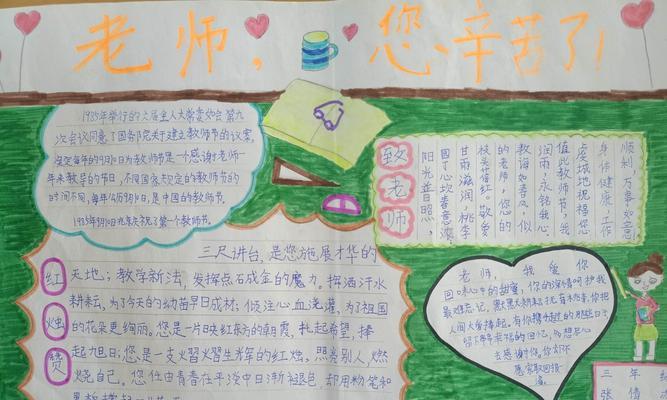 老师,您辛苦了!
1985年举行的六届全人大常委会第九
次会议同意了国务院关于建立教师节的议案,
决定每年的9月10日为教师节是一个感谢老师一
年来教导的节日,不同国家规定的教师节的
时间不同,每年的9月10日,是中国的教师节。
1985年9月10日北京庆祝了第一个教师节。
致老师
阳光普日照心
园丁心坎春意浓,
甘雨滋润,桃李
枝头蓓红。敬爱
的老师,您的
教诲如春风,似
润雨,永铭我心
值此教师节,我
虔诚地祝福您
身体健康,工作
顺利,万事如意
红烛赞
三尺讲台,是您施展才华的
天地;教学新法,发挥点石成金的魔力。挥洒汗水
耕耘,为了今天的幼苗早日成材;倾注心血浇灌,为了祖国
的花朵更绚丽。您是一片映红东方的朝霞,托起希望,捧
起旭日;您是一支熠熠生辉的红烛,照亮别人,燃
烧自己。您任由青春在平淡中日渐褪色,却用粉笔和
老师,我爱你
回味心中的甜蜜,你的深情呵护我
最难忘记,默默耕耘
人间大学捧起,有你携手
留下
去感谢你,
三年级
张倩